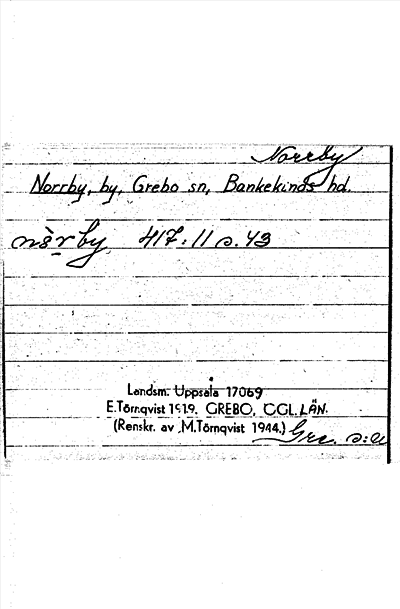 Norrby
Norrby, by, Grebo sn, Bankekinds hd.
nòrby, 417:11 s. 43
Landsm. Uppsala 17069
E.Törnqvist 1919. GREBO, ÖGL. LÄN.
(Renskr. av M.Törnqvist 1944.)
Gre.